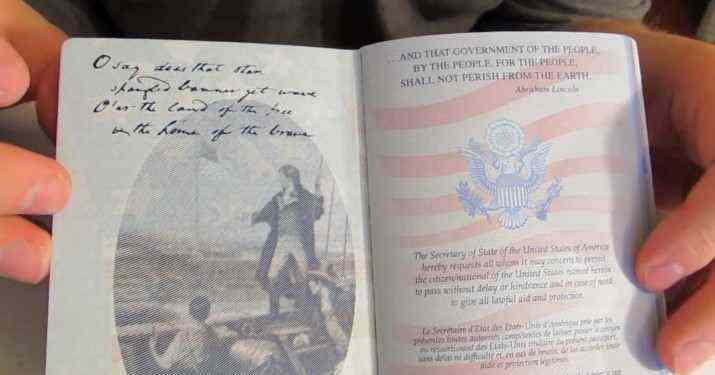 O say does that star
spangled banner yet wave
O'er the land of the free
the home of the brave
...AND THAT GOVERNMENT OF THE PEOPLE,
BY THE PEOPLE, FOR THE PEOPLE,
SHALL NOT PERISH FROM THE EARTH.
Abraham Lincoln
The Secretary of State of the United States of America
hereby requests all whom it may concern to permit
the citizen/national of the United States named herein
to pass without delay or hindrance and in case of need
to give all lawful aid and protection.
Le Secrétaire d'Etat des Etats-Unis d'Amérique prie par les
présentes toutes autorités compétentes de laisser passer le citoyen
ou ressortissant des Etats-Unis titulaire du présent passeport,
sans délai ni difficulté et, en cas de besoin, de lui accorder toute
aide et protection légitimes.